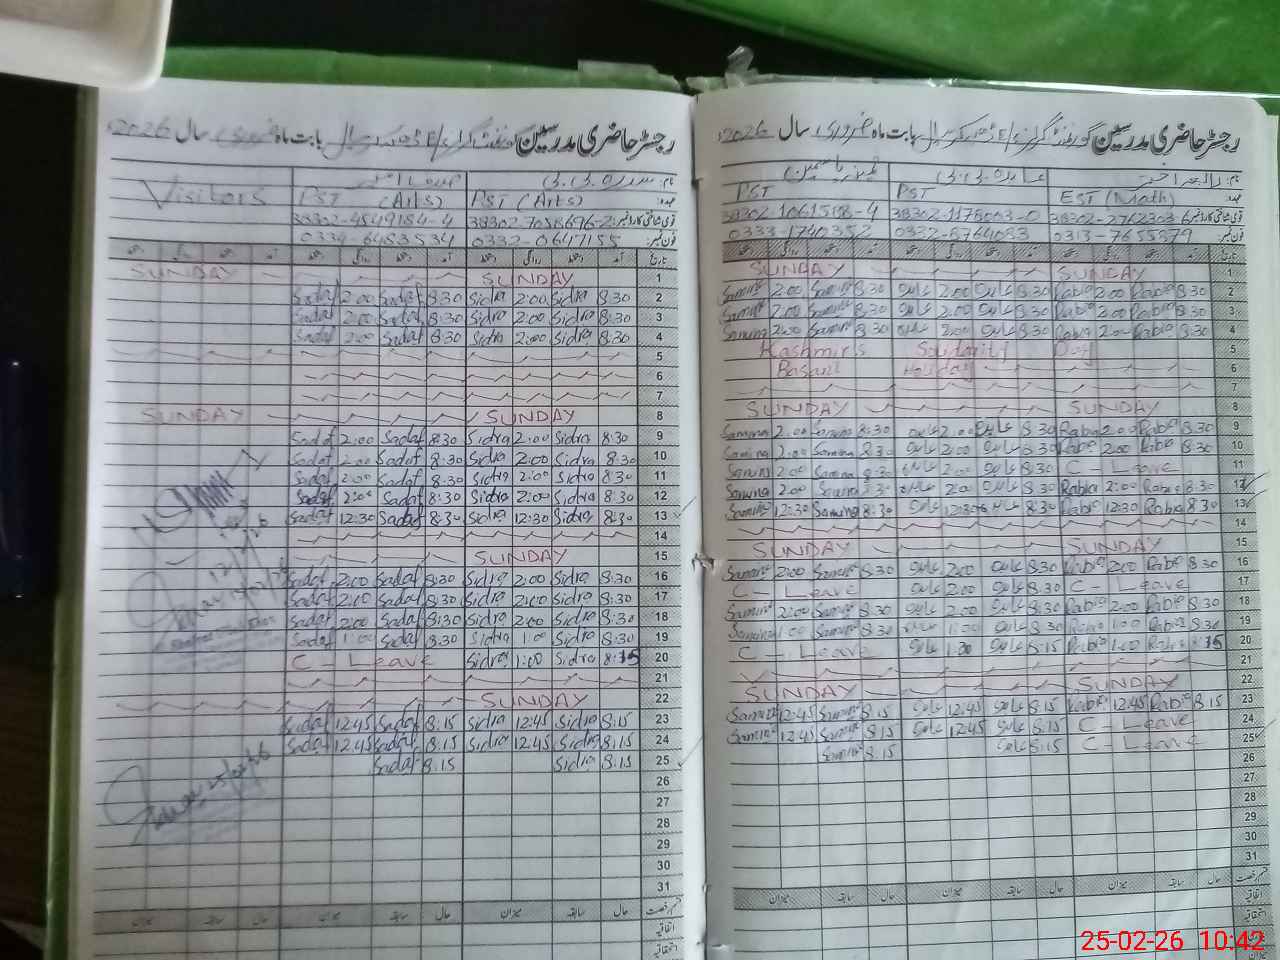 رجسٹر حاضری مدرسین گورنمنٹ گرلز بابت ماہ فروری سال 2026
نام: سدرہ
Visitors PST (Arts) PST (Arts) عہدہ:
38302-4549184-4 38302-7058696-2 قومی شناختی کارڈ نمبر:
0334-6483534 0332-0647155 فون نمبر:
SUNDAY SUNDAY 1
Sadaf 2:00 Sadaf 8:30 Sidra 2:00 Sidra 8:30 2
Sadaf 2:00 Sadaf 8:30 Sidra 2:00 Sidra 8:30 3
Sadaf 2:00 Sadaf 8:30 Sidra 2:00 Sidra 8:30 4
5
6
7
SUNDAY SUNDAY 8
Sadaf 2:00 Sadaf 8:30 Sidra 2:00 Sidra 8:30 9
Sadaf 2:00 Sadaf 8:30 Sidra 2:00 Sidra 8:30 10
Sadaf 2:00 Sadaf 8:30 Sidra 2:00 Sidra 8:30 11
Sadaf 2:00 Sadaf 8:30 Sidra 2:00 Sidra 8:30 12
Sadaf 12:30 Sadaf 8:30 Sidra 12:30 Sidra 8:30 13
14
SUNDAY 15
Sadaf 2:00 Sadaf 8:30 Sidra 2:00 Sidra 8:30 16
Sadaf 2:00 Sadaf 8:30 Sidra 2:00 Sidra 8:30 17
Sadaf 2:00 Sadaf 8:30 Sidra 2:00 Sidra 8:30 18
Sadaf 1:00 Sadaf 8:30 Sidra 1:00 Sidra 8:30 19
C - Leave Sidra 1:00 Sidra 8:15 20
21
SUNDAY 22
Sadaf 12:45 Sadaf 8:15 Sidra 12:45 Sidra 8:15 23
Sadaf 12:45 Sadaf 8:15 Sidra 12:45 Sidra 8:15 24
Sadaf 8:15 Sidra 8:15 25
26
27
28
29
30
31
میزان سابقہ حال میزان سابقہ حال میزان سابقہ حال قسم رخصت
اتفاقیہ
رجسٹر حاضری مدرسین گورنمنٹ گرلز بابت ماہ فروری سال 2026
ثمینہ یاسمین نام: رابعہ اختر
PST PST EST (Math) عہدہ:
38302-1061518-4 38302-1178003-0 38302-2762303-6
0333-1740352 0332-8764033 0313-7655379 فون نمبر:
SUNDAY SUNDAY 1
Samina 2:00 Samina 8:30 عابدہ 2:00 عابدہ 8:30 Rabia 2:00 Rabia 8:30 2
Samina 2:00 Samina 8:30 عابدہ 2:00 عابدہ 8:30 Rabia 2:00 Rabia 8:30 3
Samina 2:00 Samina 8:30 عابدہ 2:00 عابدہ 8:30 Rabia 2:00 Rabia 8:30 4
Kashmir's Solidarity Day 5
Basant Holiday 6
7
SUNDAY SUNDAY 8
Samina 2:00 Samina 8:30 عابدہ 2:00 عابدہ 8:30 Rabia 2:00 Rabia 8:30 9
Samina 2:00 Samina 8:30 عابدہ 2:00 عابدہ 8:30 Rabia 2:00 Rabia 8:30 10
Samina 2:00 Samina 8:30 عابدہ 2:00 عابدہ 8:30 C - Leave 11
Samina 2:00 Samina 8:30 عابدہ 2:00 عابدہ 8:30 Rabia 2:00 Rabia 8:30 12
Samina 12:30 Samina 8:30 عابدہ 12:30 عابدہ 8:30 Rabia 12:30 Rabia 8:30 13
14
SUNDAY SUNDAY 15
Samina 2:00 Samina 8:30 عابدہ 2:00 عابدہ 8:30 Rabia 2:00 Rabia 8:30 16
C - Leave عابدہ 2:00 عابدہ 8:30 C - Leave 17
Samina 2:00 Samina 8:30 عابدہ 2:00 عابدہ 8:30 Rabia 2:00 Rabia 8:30 18
Samina 1:00 Samina 8:30 عابدہ 1:00 عابدہ 8:30 Rabia 1:00 Rabia 8:30 19
C - Leave عابدہ 1:00 عابدہ 8:15 Rabia 1:00 Rabia 8:15 20
21
SUNDAY SUNDAY 22
Samina 12:45 Samina 8:15 عابدہ 12:45 عابدہ 8:15 Rabia 12:45 Rabia 8:15 23
Samina 12:45 Samina 8:15 عابدہ 12:45 عابدہ 8:15 C - Leave 24
Samina 8:15 عابدہ 8:15 C - Leave 25
26
27
28
29
30
31
میزان سابقہ حال میزان سابقہ حال میزان سابقہ حال قسم رخصت
اتفاقیہ
25-02-26 10:42